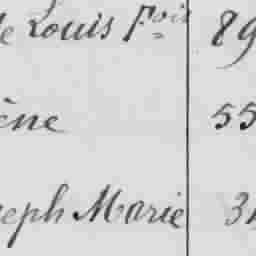 de Louis F.ois 89
ène 55
seph Marie 34